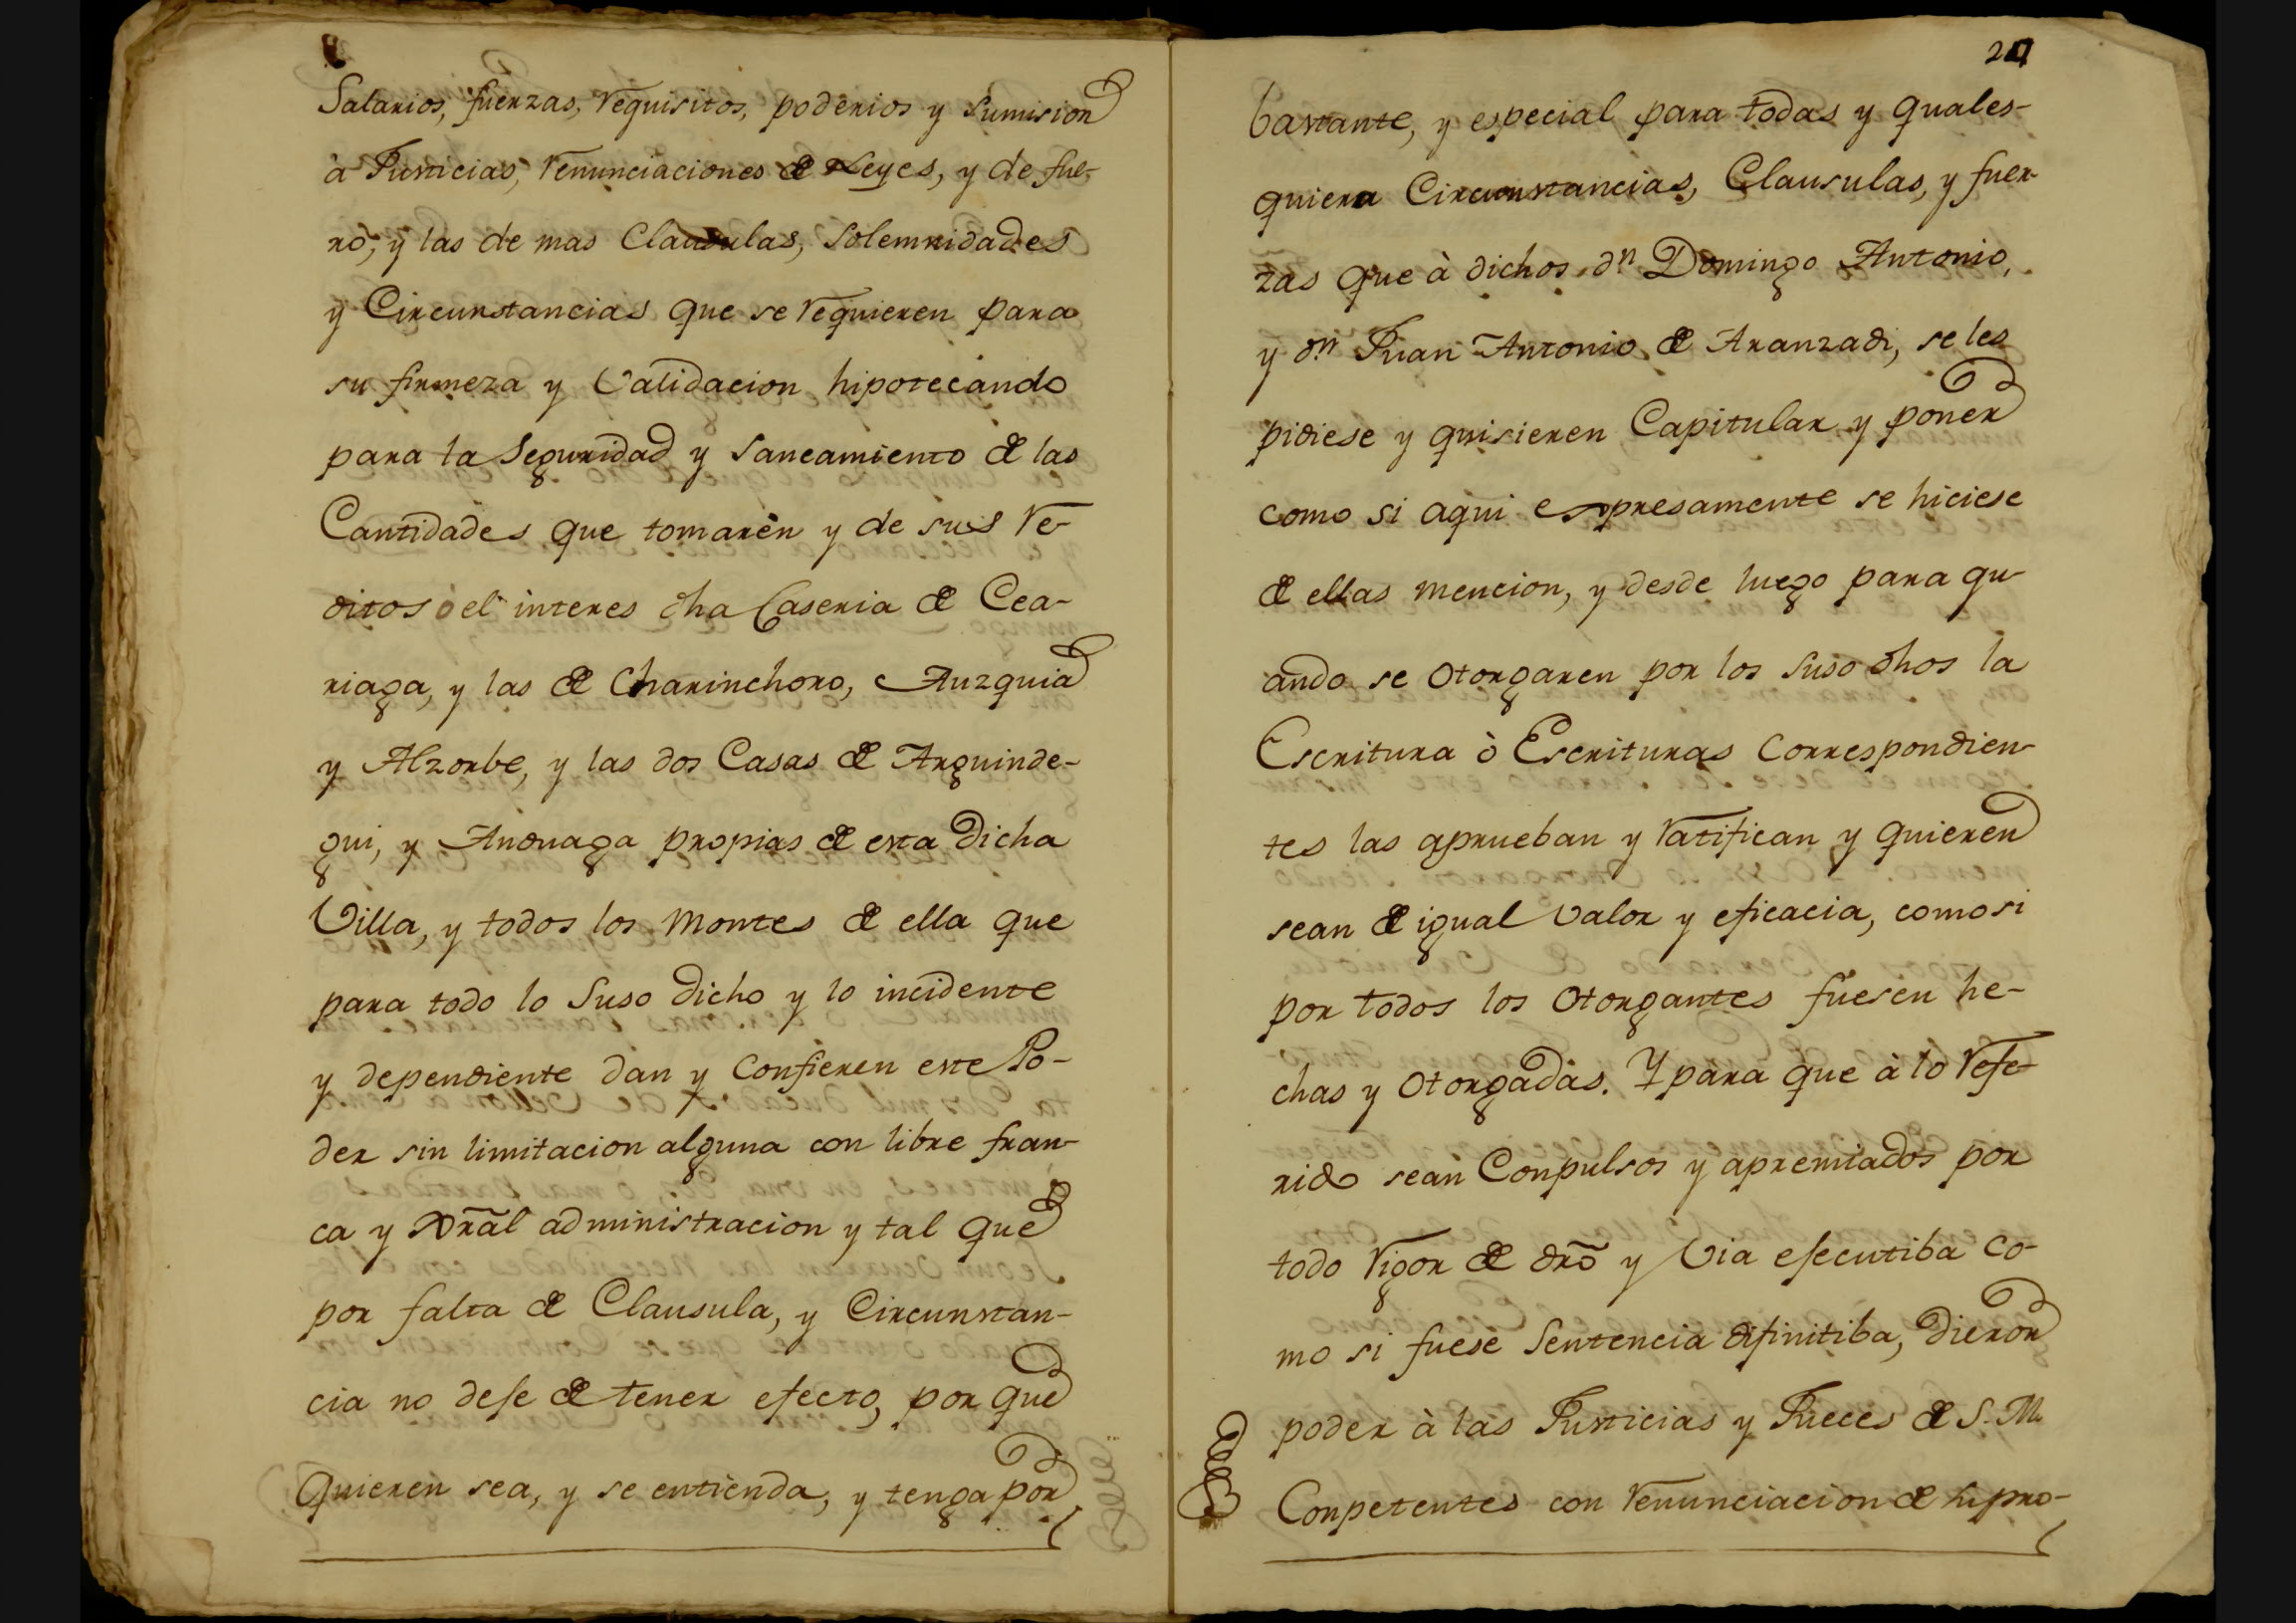 Salarios, fuerzas, requisitos, poderios y sumision
à Justicias, renunciaciones de Leyes, y de fue-
ro, y las de mas Clausulas, solemnidades
y Circunstancias que se requieren para
su firmeza y Validacion hipotecando
para la Seguridad y Saneamiento de las
Cantidades que tomaren y de sus re-
ditos ò el interes dha Caseria de Cea-
riaga, y las de Charinchoro, Auzquia
y Alzorbe, y las dos Casas de Arguinde-
gui, y Anduaga propias de esta dicha
Villa, y todos los Montes de ella que
para todo lo suso dicho y lo incidente
y dependiente dan y confieren este Po-
der sin limitacion alguna con libre fran-
ca y xral administracion y tal que
por falta de Clausula, y Circunstan-
cia no defe de tener efecto, por que
Quieren sea, y se entienda, y tenga por
bastante, y especial para todas y quales-
quiera Circunstancias, Clausulas, y fuer-
zas que à dichos dn Domingo Antonio,
y dn Juan Antonio de Aranzadi, se les
pidiese y quisieren Capitular y poner
como si aqui expresamente se hiciese
de ellas mencion, y desde luego para qu-
ando se otorgaren por los suso dhos la
Escritura ò Escrituras Correspondien-
tes las aprueban y ratifican y quieren
sean de igual valor y eficacia, como si
por todos los otorgantes fuesen he-
chas y otorgadas. Y para que à lo refe-
rido sean Conpulsos y apremiados por
todo rigor de dro y Via efecutiba co-
mo si fuese Sentencia difinitiba, dieron
poder à las Justicias y Jueces de S. M.
Conpetentes con renunciacion de su pro-